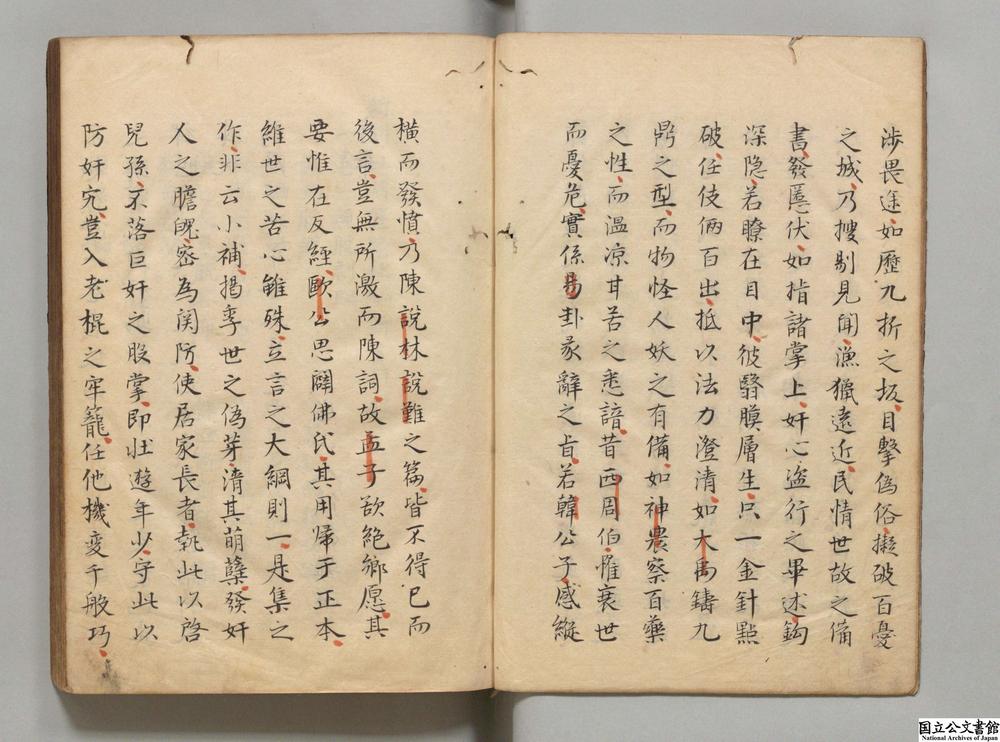 涉畏途如歷九折之坂目擊偽俗擬破百憂
之城乃搜剔見聞漁獵遠近民情世故之備
書發慝伏如指諸掌上奸心盜行之畢述鈎
深隐若瞭在目中彼翳膜層生只一金針點
破任伎俩百出抵以法力澄清如大禹鑄九
鼎之型而物怪人妖之有備如神農察百藥
之性而温凉甘苦之悉諳昔西周伯惟衰世
而憂危實係易卦彖辭之旨若韓公子感縱
橫而發憤乃陳說林說難之篇皆不得已而
後言豈無所激而陳詞故孟子欲絕鄉愿其
要惟在反經歐公思闢佛氏其用歸于正本
維世之苦心雖殊立言之大綱則一是集之
作非云小補揭季世之偽芽清其萌蘖發奸
人之膽魄密為関防使居家長者執此以啓
兒孫不落巨奸之股掌即壮遊年少守此以
防奸宄豈入老棍之牢籠任他機変千般巧
国立公文書館
National Archives of Japan